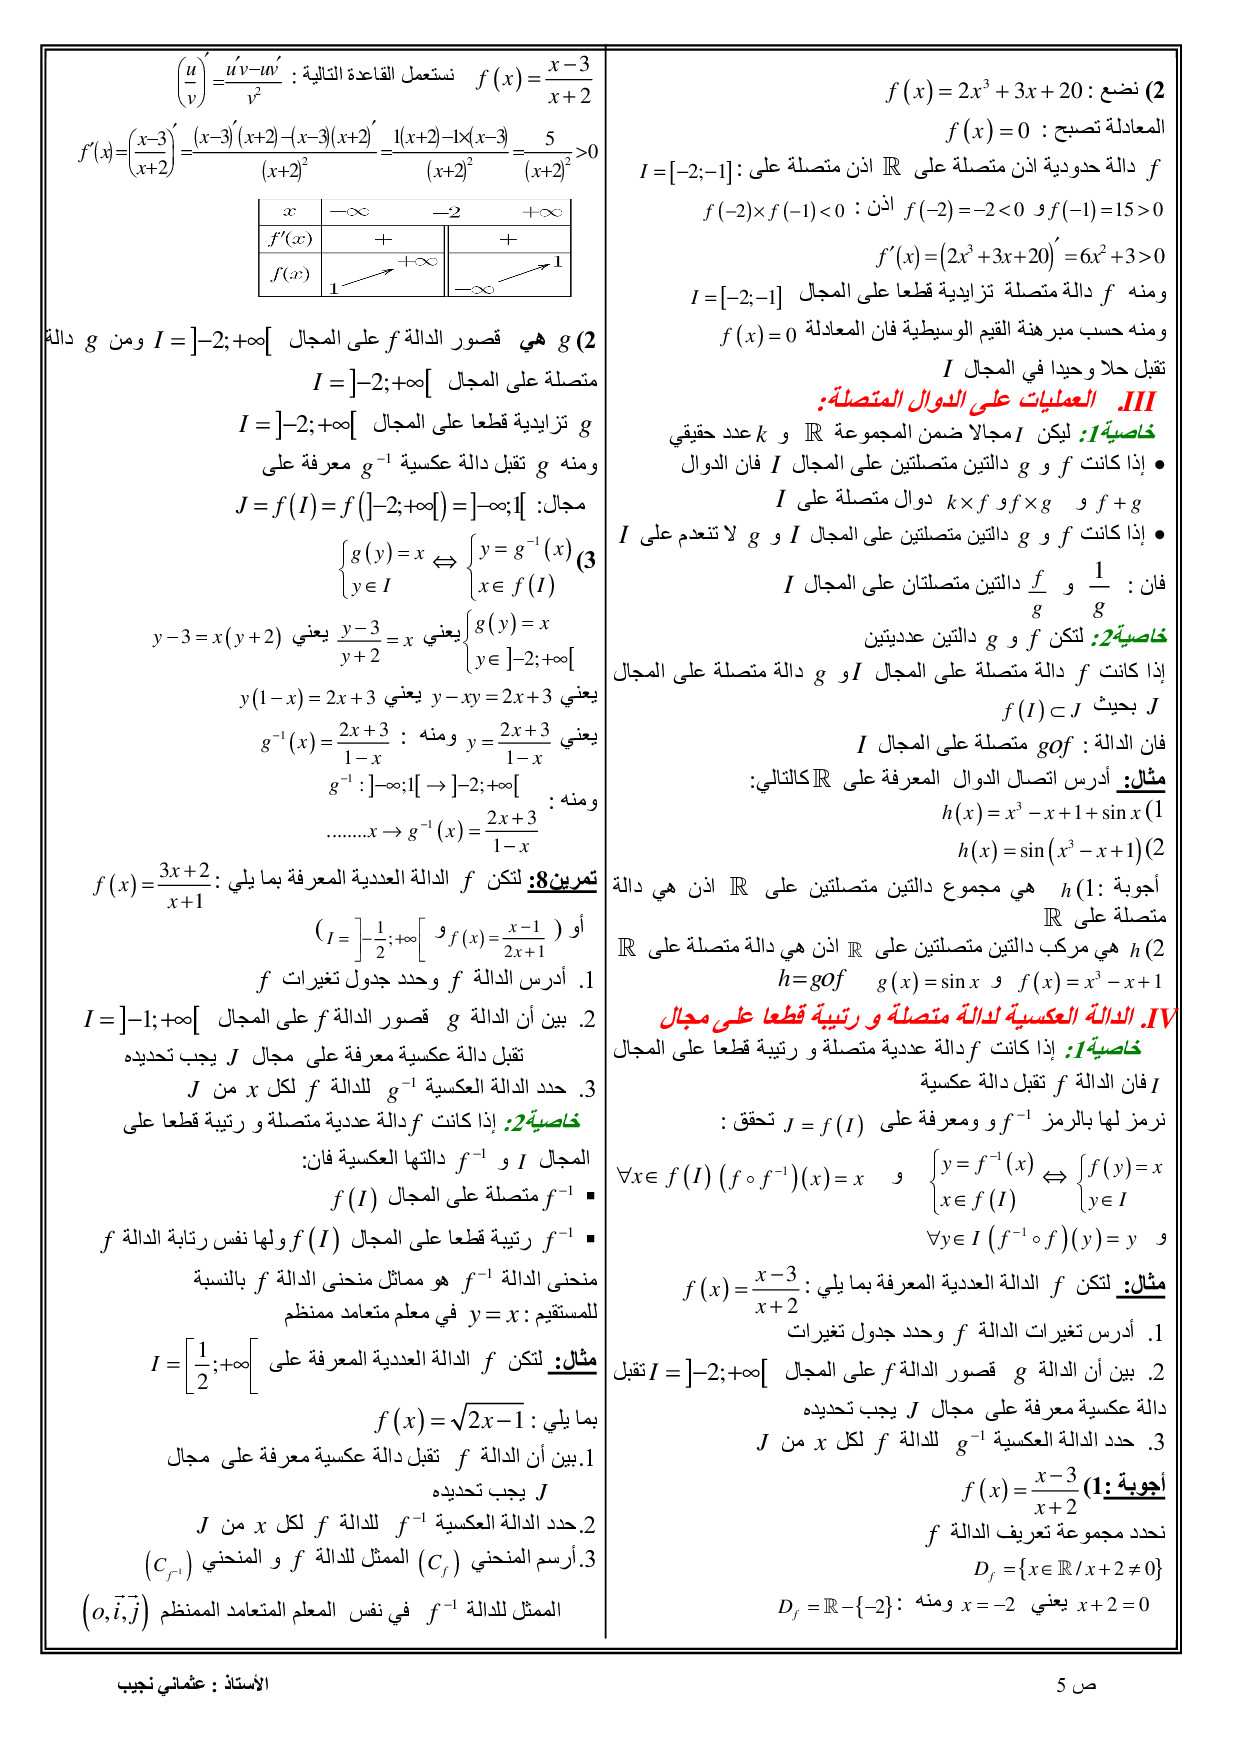 2) نضع : f(x) = 2x³ + 3x + 20
المعادلة تصبح : f(x) = 0
f دالة حدودية اذن متصلة على ℝ اذن متصلة على : I = [−2;−1]
f(−1) = 15 > 0 و f(−2) = −2 < 0 اذن : f(−2) × f(−1) < 0
f′(x) = (2x³ + 3x + 20)′ = 6x² + 3 > 0
ومنه f دالة متصلة تزايدية قطعا على المجال I = [−2;−1]
ومنه حسب مبرهنة القيم الوسيطية فان المعادلة f(x) = 0
تقبل حلا وحيدا في المجال I
III. العمليات على الدوال المتصلة:
خاصية1: ليكن I مجالا ضمن المجموعة ℝ و k عدد حقيقي
• إذا كانت f و g دالتين متصلتين على المجال I فان الدوال
f + g و f × g و k × f دوال متصلة على I
• إذا كانت f و g دالتين متصلتين على المجال I و g لا تنعدم على I
فان : 1/g و f/g دالتين متصلتان على المجال I
خاصية2: لتكن f و g دالتين عدديتين
إذا كانت f دالة متصلة على المجال I و g دالة متصلة على المجال
J بحيث f(I) ⊂ J
فان الدالة : gof متصلة على المجال I
مثال: أدرس اتصال الدوال المعرفة على ℝ كالتالي:
1) h(x) = x³ − x + 1 + sin x
2) h(x) = sin(x³ − x + 1)
أجوبة :1) h هي مجموع دالتين متصلتين على ℝ اذن هي دالة
متصلة على ℝ
2) h هي مركب دالتين متصلتين على ℝ اذن هي دالة متصلة على ℝ
f(x) = x³ − x + 1 و g(x) = sin x h = gof
IV. الدالة العكسية لدالة متصلة و رتيبة قطعا على مجال
خاصية1: إذا كانت f دالة عددية متصلة و رتيبة قطعا على المجال
I فان الدالة f تقبل دالة عكسية
نرمز لها بالرمز f⁻¹ و ومعرفة على J = f(I) تحقق :
{f(y) = x ; y ∈ I ⇔ {y = f⁻¹(x) ; x ∈ f(I) و ∀x ∈ f(I) (f ∘ f⁻¹)(x) = x
و ∀y ∈ I (f⁻¹ ∘ f)(y) = y
مثال: لتكن f الدالة العددية المعرفة بما يلي : f(x) = (x−3)/(x+2)
1. أدرس تغيرات الدالة f وحدد جدول تغيرات
2. بين أن الدالة g قصور الدالة f على المجال I = ]−2;+∞[ تقبل
دالة عكسية معرفة على مجال J يجب تحديده
3. حدد الدالة العكسية g⁻¹ للدالة f لكل x من J
أجوبة :1) f(x) = (x−3)/(x+2)
نحدد مجموعة تعريف الدالة f
D_f = {x ∈ ℝ / x + 2 ≠ 0}
x + 2 = 0 يعني x = −2 ومنه : D_f = ℝ − {−2}
f(x) = (x−3)/(x+2) نستعمل القاعدة التالية : (u/v)′ = (u′v−uv′)/v²
f′(x) = ((x−3)/(x+2))′ = ((x−3)′(x+2)−(x−3)(x+2)′)/(x+2)² = (1(x+2)−1×(x−3))/(x+2)² = 5/(x+2)² > 0
x −∞ −2 +∞
f′(x) + +
f(x) 1 +∞ −∞ 1
2) g هي قصور الدالة f على المجال I = ]−2;+∞[ ومن g دالة
متصلة على المجال I = ]−2;+∞[
g تزايدية قطعا على المجال I = ]−2;+∞[
ومنه g تقبل دالة عكسية g⁻¹ معرفة على
مجال: J = f(I) = f(]−2;+∞[) = ]−∞;1[
3) {g(y) = x ; y ∈ I ⇔ {y = g⁻¹(x) ; x ∈ f(I)
{g(y) = x ; y ∈ ]−2;+∞[ يعني (y−3)/(y+2) = x يعني y − 3 = x(y + 2)
يعني y − xy = 2x + 3 يعني y(1 − x) = 2x + 3
يعني y = (2x+3)/(1−x) ومنه : g⁻¹(x) = (2x+3)/(1−x)
ومنه : g⁻¹ : ]−∞;1[ → ]−2;+∞[
........x → g⁻¹(x) = (2x+3)/(1−x)
تمرين8: لتكن f الدالة العددية المعرفة بما يلي : f(x) = (3x+2)/(x+1)
أو ( f(x) = (x−1)/(2x+1) و I = ]−1/2;+∞[ )
1. أدرس الدالة f وحدد جدول تغيرات f
2. بين أن الدالة g قصور الدالة f على المجال I = ]−1;+∞[
تقبل دالة عكسية معرفة على مجال J يجب تحديده
3. حدد الدالة العكسية g⁻¹ للدالة f لكل x من J
خاصية2: إذا كانت f دالة عددية متصلة و رتيبة قطعا على
المجال I و f⁻¹ دالتها العكسية فان:
▪ f⁻¹ متصلة على المجال f(I)
▪ f⁻¹ رتيبة قطعا على المجال f(I) ولها نفس رتابة الدالة f
منحنى الدالة f⁻¹ هو مماثل منحنى الدالة f بالنسبة
للمستقيم : y = x في معلم متعامد ممنظم
مثال: لتكن f الدالة العددية المعرفة على I = [1/2;+∞[
بما يلي : f(x) = √(2x−1)
1.بين أن الدالة f تقبل دالة عكسية معرفة على مجال
J يجب تحديده
2.حدد الدالة العكسية f⁻¹ للدالة f لكل x من J
3.أرسم المنحني (C_f) الممثل للدالة f و المنحني (C_f⁻¹)
الممثل للدالة f⁻¹ في نفس المعلم المتعامد الممنظم (o, i⃗, j⃗)
ص 5
الأستاذ : عثماني نجيب